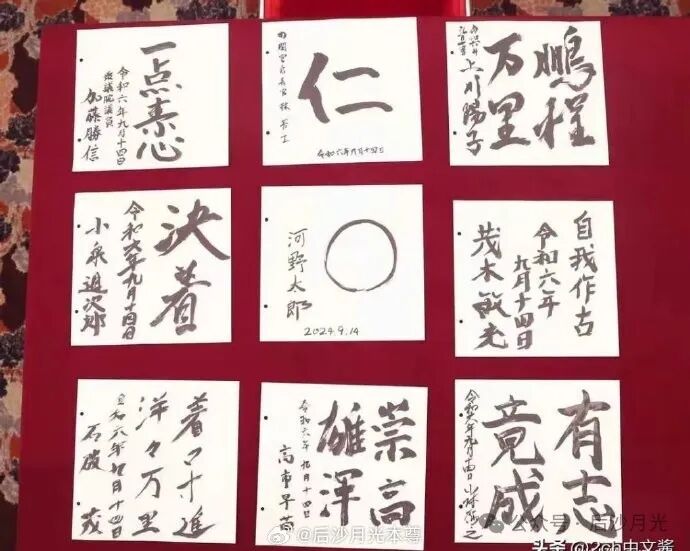 一点素心
令和六年九月十四日
衆議院議員
加藤勝信
仁
内閣官房長官 林 芳正
令和六年九月十四日
鵬程
万里
上川陽子
決着
令和六年九月十四日
小泉進次郎
河野太郎
2024.9.14
自我作古
令和六年
九月十四日
茂木敏充
着々寸進
洋々万里
令和六年九月十四日
石破 茂
崇高
雄渾
令和六年九月十四日
高市早苗
有志
竟成
令和六年九月十四日 小林鷹之
@后沙月光本尊
公众号·后沙月光
头条@2ch中文酱